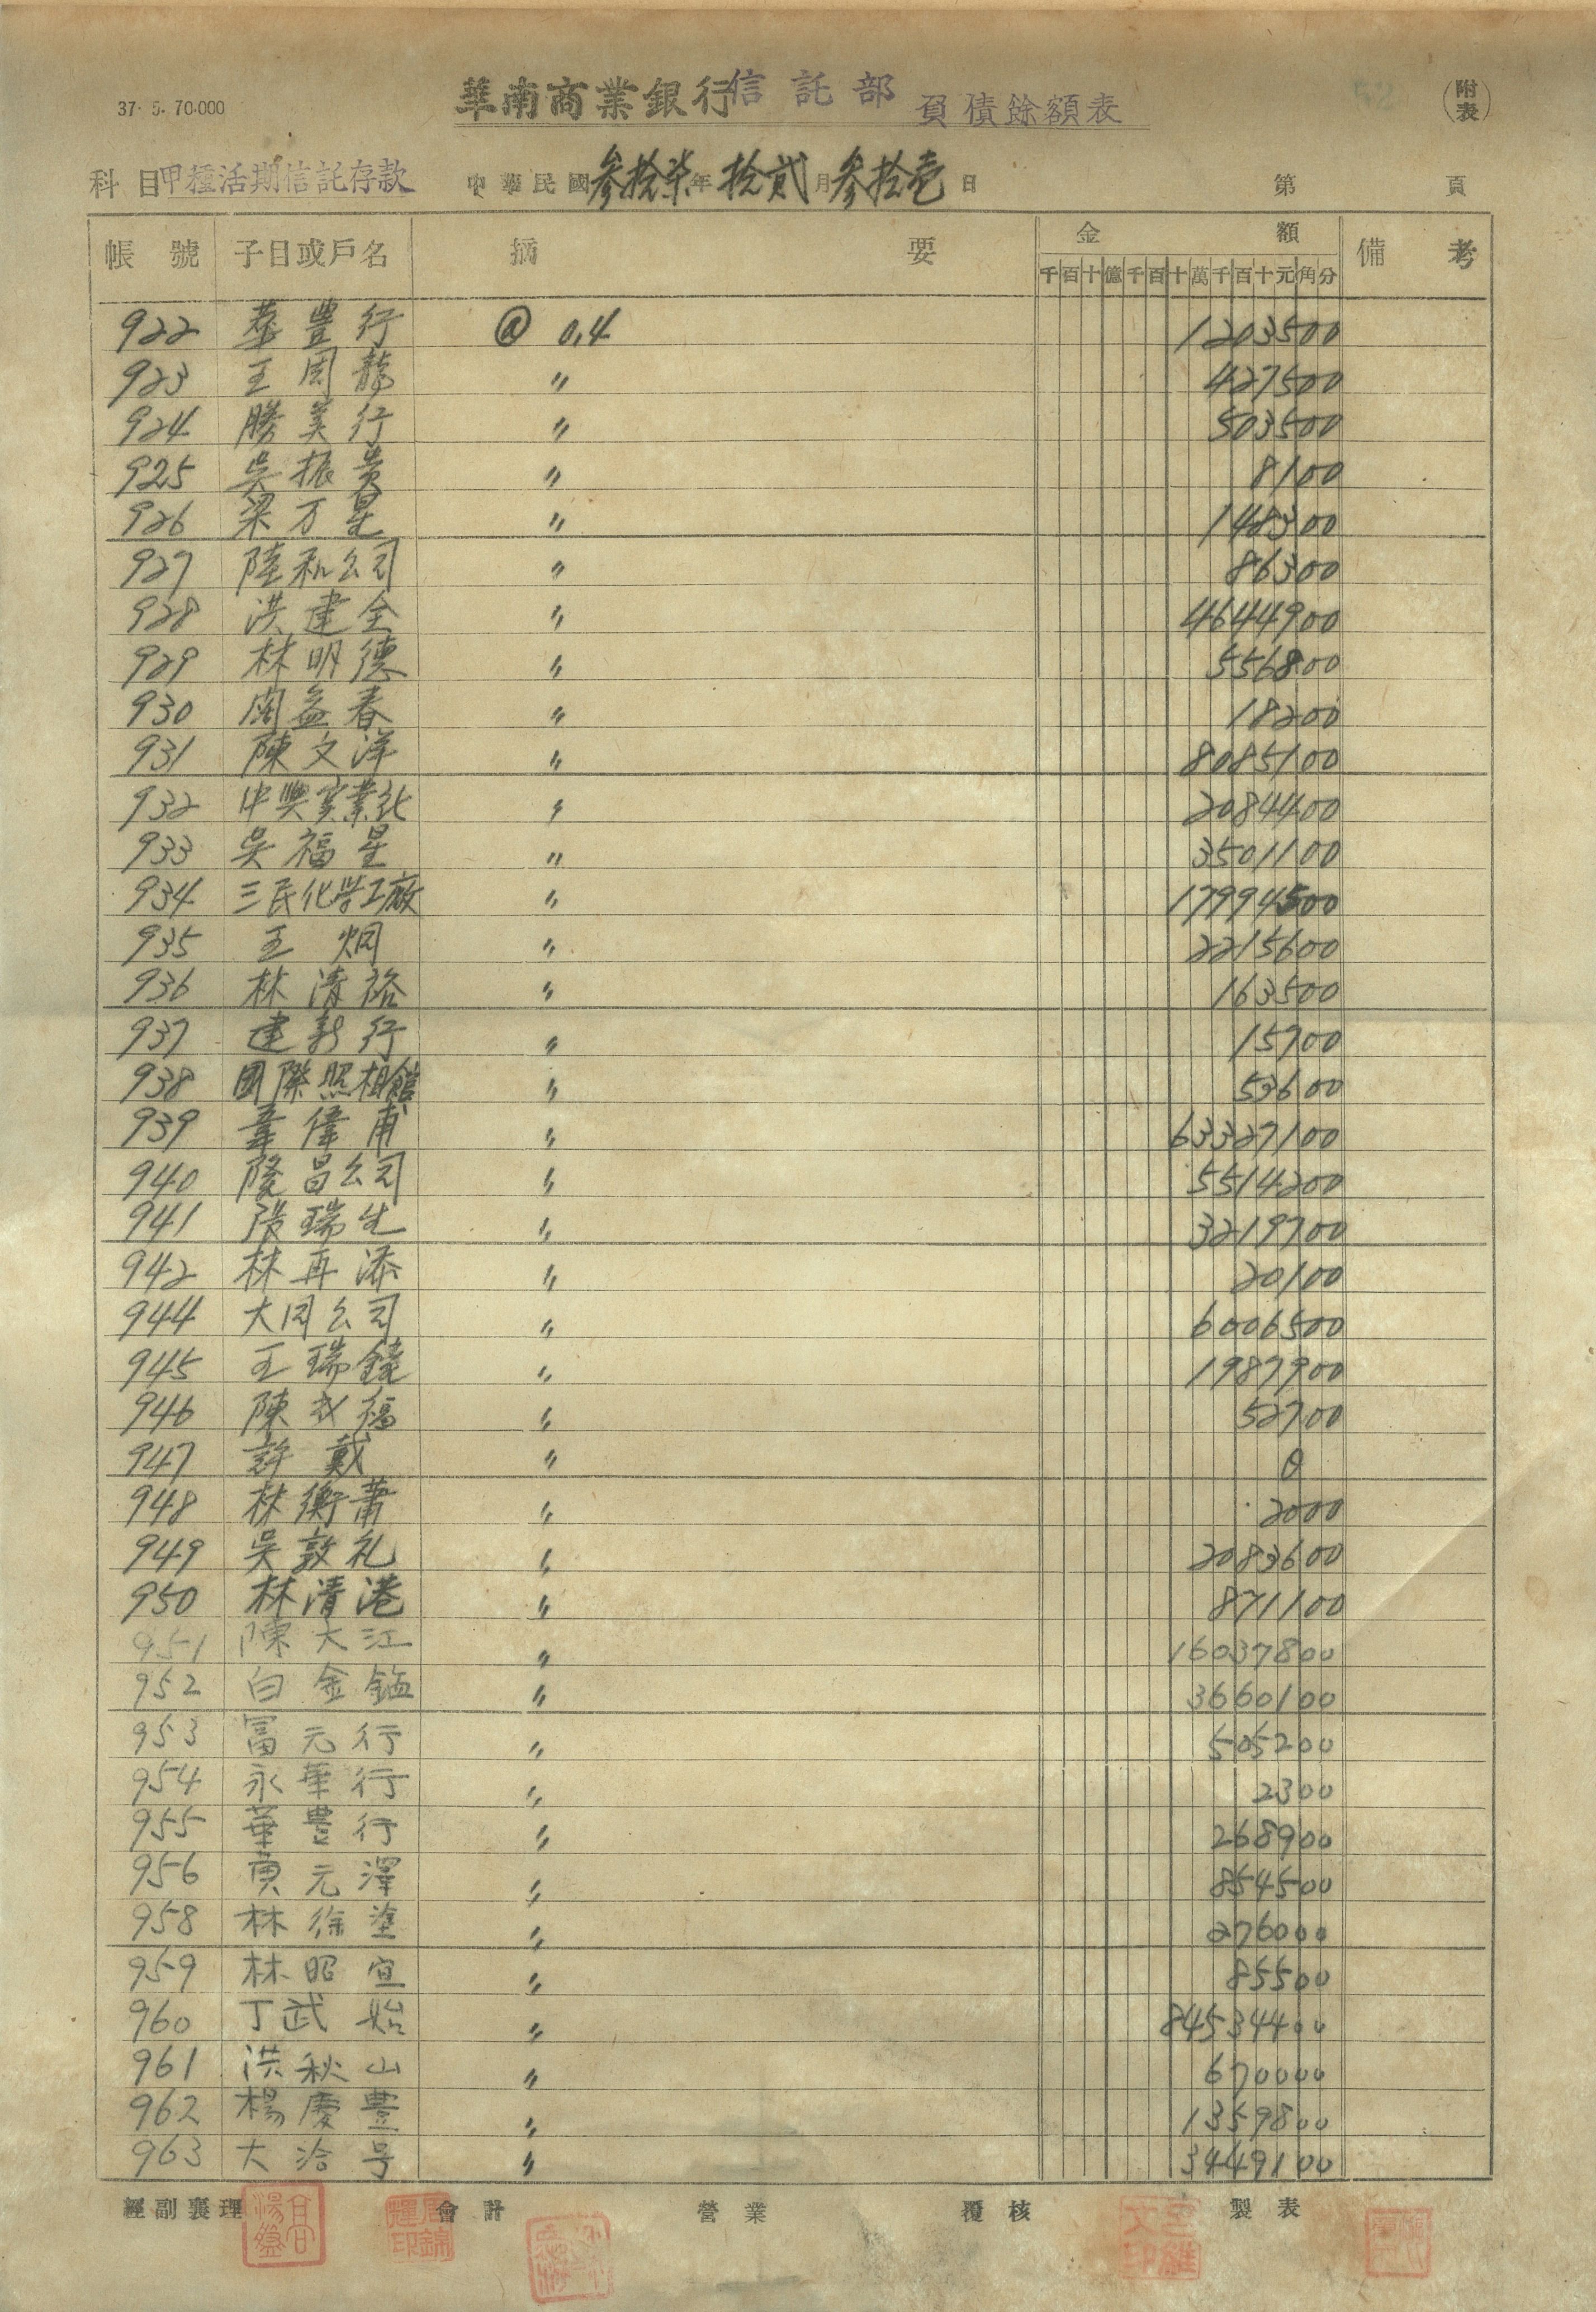 37. 5. 70.000
華南商業銀行信託部 負債餘額表
(附表)
科目甲種活期信託存款 中華民國參拾柒年拾貳月參拾壱日 第 頁
帳號 子目或戶名 摘要 金額 備考
千百十億千百十萬千百十元角分
922 華豊行 @ 0.4 1203500
923 王周龍 〃 427500
924 勝美行 〃 503500
925 吳振貴 〃 8100
926 梁万星 〃 148300
927 陸和公司 〃 86300
928 洪建全 〃 4644900
929 林明德 〃 556800
930 周益春 〃 18200
931 陳文洋 〃 8085100
932 中興実業社 〃 2084400
933 吳福星 〃 3501100
934 三民化学工廠 〃 17994500
935 王炯 〃 2215600
936 林清裕 〃 163500
937 建新行 〃 15900
938 國際照相館 〃 53600
939 韋偉甫 〃 63327100
940 隆昌公司 〃 5514200
941 瑞生 〃 3219700
942 林再添 〃 20100
944 大同公司 〃 6006500
945 王瑞鐃 〃 1987900
946 陳武福 〃 52700
947 許戴 〃 0
948 林衡肅 〃 2000
949 吳敦礼 〃 2083600
950 林清港 〃 871100
951 陳大江 〃 16037800
952 白金鎰 〃 3660100
953 富元行 〃 505200
954 永華行 〃 2300
955 華豊行 〃 268900
956 黄元澤 〃 854500
958 林徐塗 〃 276000
959 林昭宜 〃 85500
960 丁武始 〃 84534400
961 洪秋山 〃 670000
962 楊慶豊 〃 1359800
963 大洽号 〃 3449100
經副襄理 會計 營業 覆核 製表